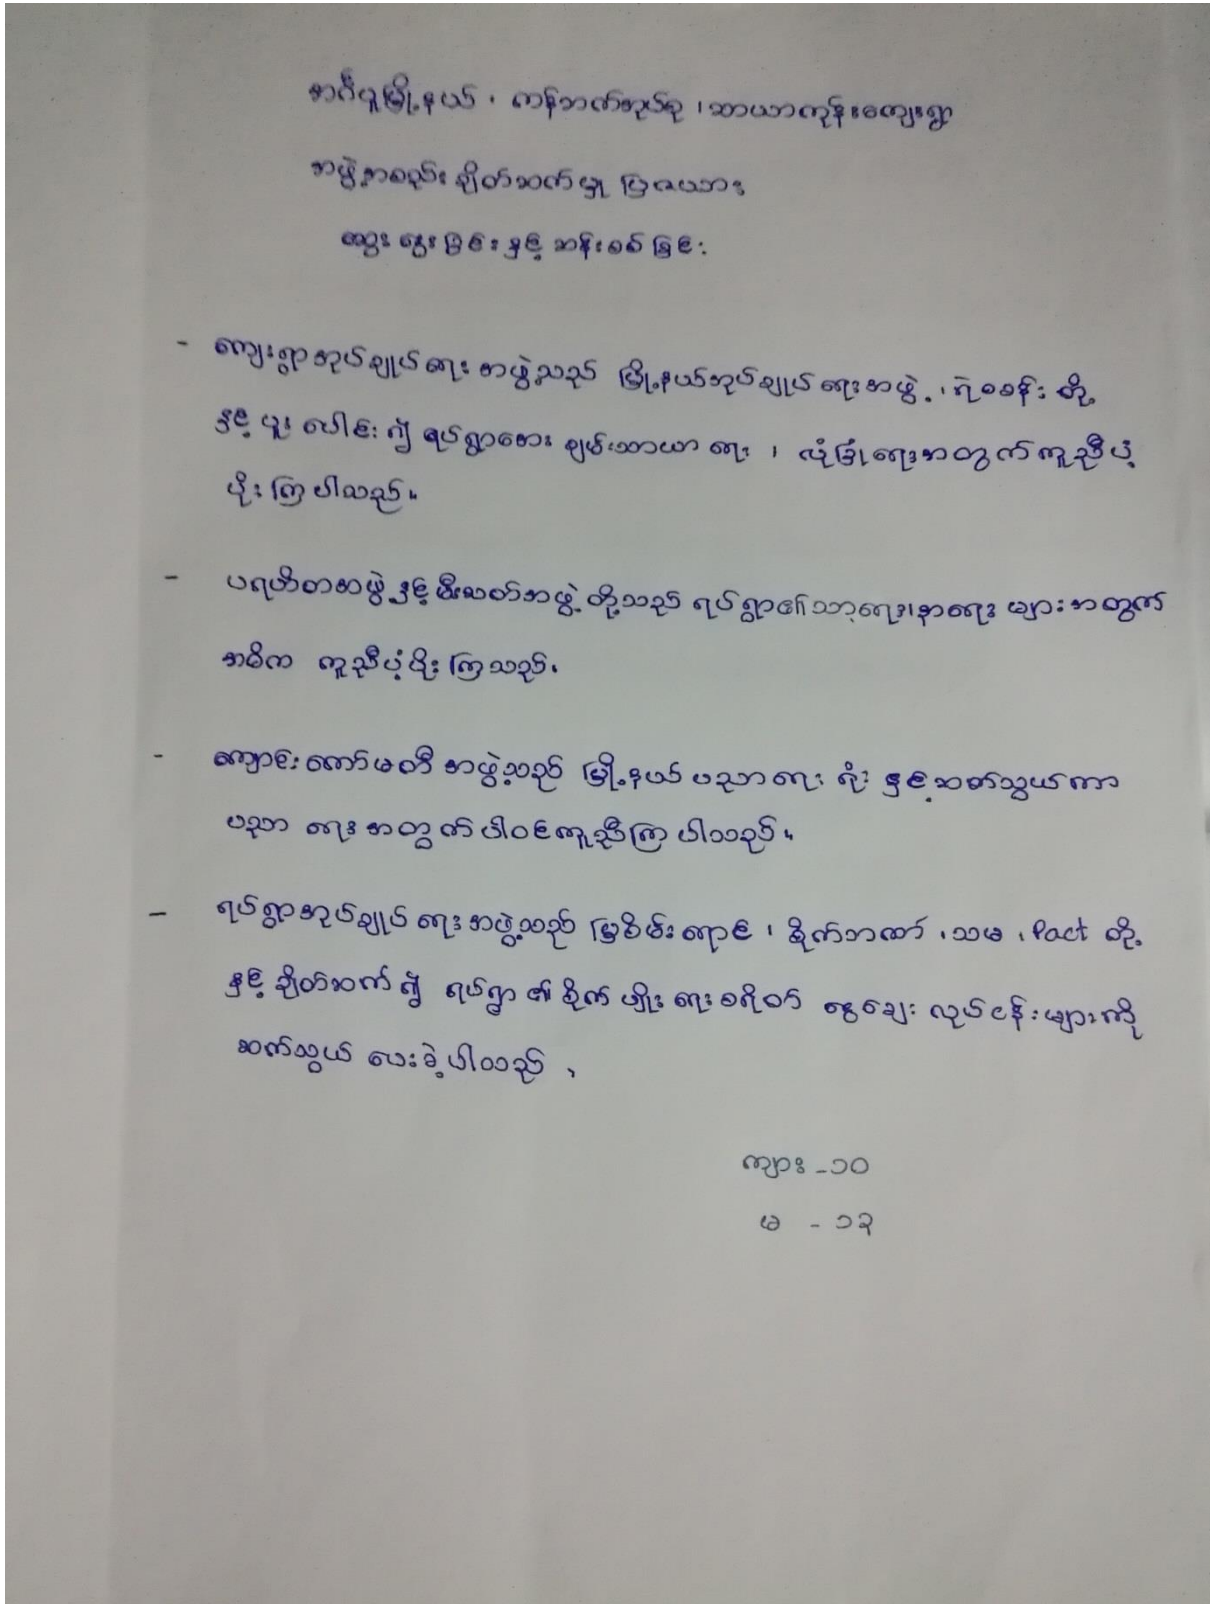 အင်္ဂပူမြို့နယ်၊ ကန်ဘက်အုပ်စု၊ သာယာကုန်းကျေးရွာ
အဖွဲ့အစည်း ချိတ်ဆက်မှု ပြဇယား
ဆွေးနွေးခြင်းနှင့် ဆန်းစစ်ခြင်း
- ကျေးရွာအုပ်ချုပ်ရေးအဖွဲ့သည် မြို့နယ်အုပ်ချုပ်ရေးအဖွဲ့၊ ရဲစခန်းတို့
နှင့် ပူးပေါင်း၍ ရပ်ရွာအေးချမ်းသာယာရေး၊ လုံခြုံရေးအတွက်ကူညီပံ့
ပိုးကြပါသည်။
- ပရဟိတအဖွဲ့နှင့်မီးသတ်အဖွဲ့တို့သည် ရပ်ရွာ၏သာရေး၊နာရေးများအတွက်
အဓိက ကူညီပံ့ပိုးကြသည်။
- ကျောင်းကော်မတီ အဖွဲ့သည် မြို့နယ်ပညာရေးရုံးနှင့်ဆက်သွယ်ကာ
ပညာရေးအတွက်ပါဝင်ကူညီကြပါသည်။
- ရပ်ရွာအုပ်ချုပ်ရေးအဖွဲ့သည် မြစိမ်းရောင်၊ စိုက်ဘဏ်၊ သမ၊ Pact တို့
နှင့် ချိတ်ဆက်၍ ရပ်ရွာ၏ စိုက်ပျိုးရေးစရိတ် ငွေချေးလုပ်ငန်းများကို
ဆက်သွယ်ပေးခဲ့ပါသည်၊
ကျား - ၁၀
မ - ၁၃